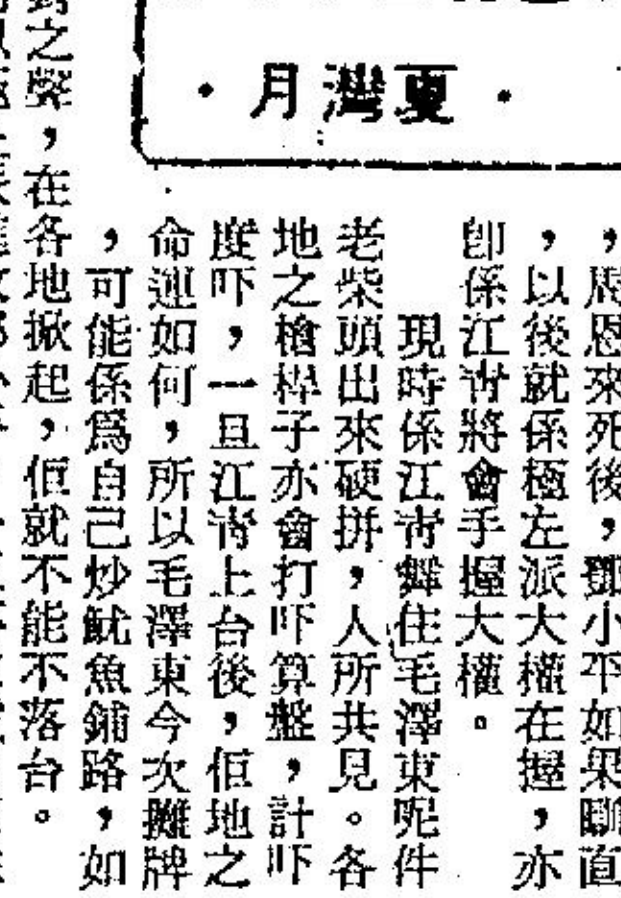 ・夏灣月・
，周恩來死後，鄧小平如果瞓直
，以後就係極左派大權在握，亦
卽係江青將會手握大權。
現時係江青舞住毛澤東呢件
老柴頭出來硬拼，人所共見。各
地之槍桿子亦會打吓算盤，計吓
度吓，一旦江青上台後，佢地之
命運如何，所以毛澤東今次攤牌
，可能係爲自己炒魷魚鋪路，如
之弊，在各地掀起，佢就不能不落台。